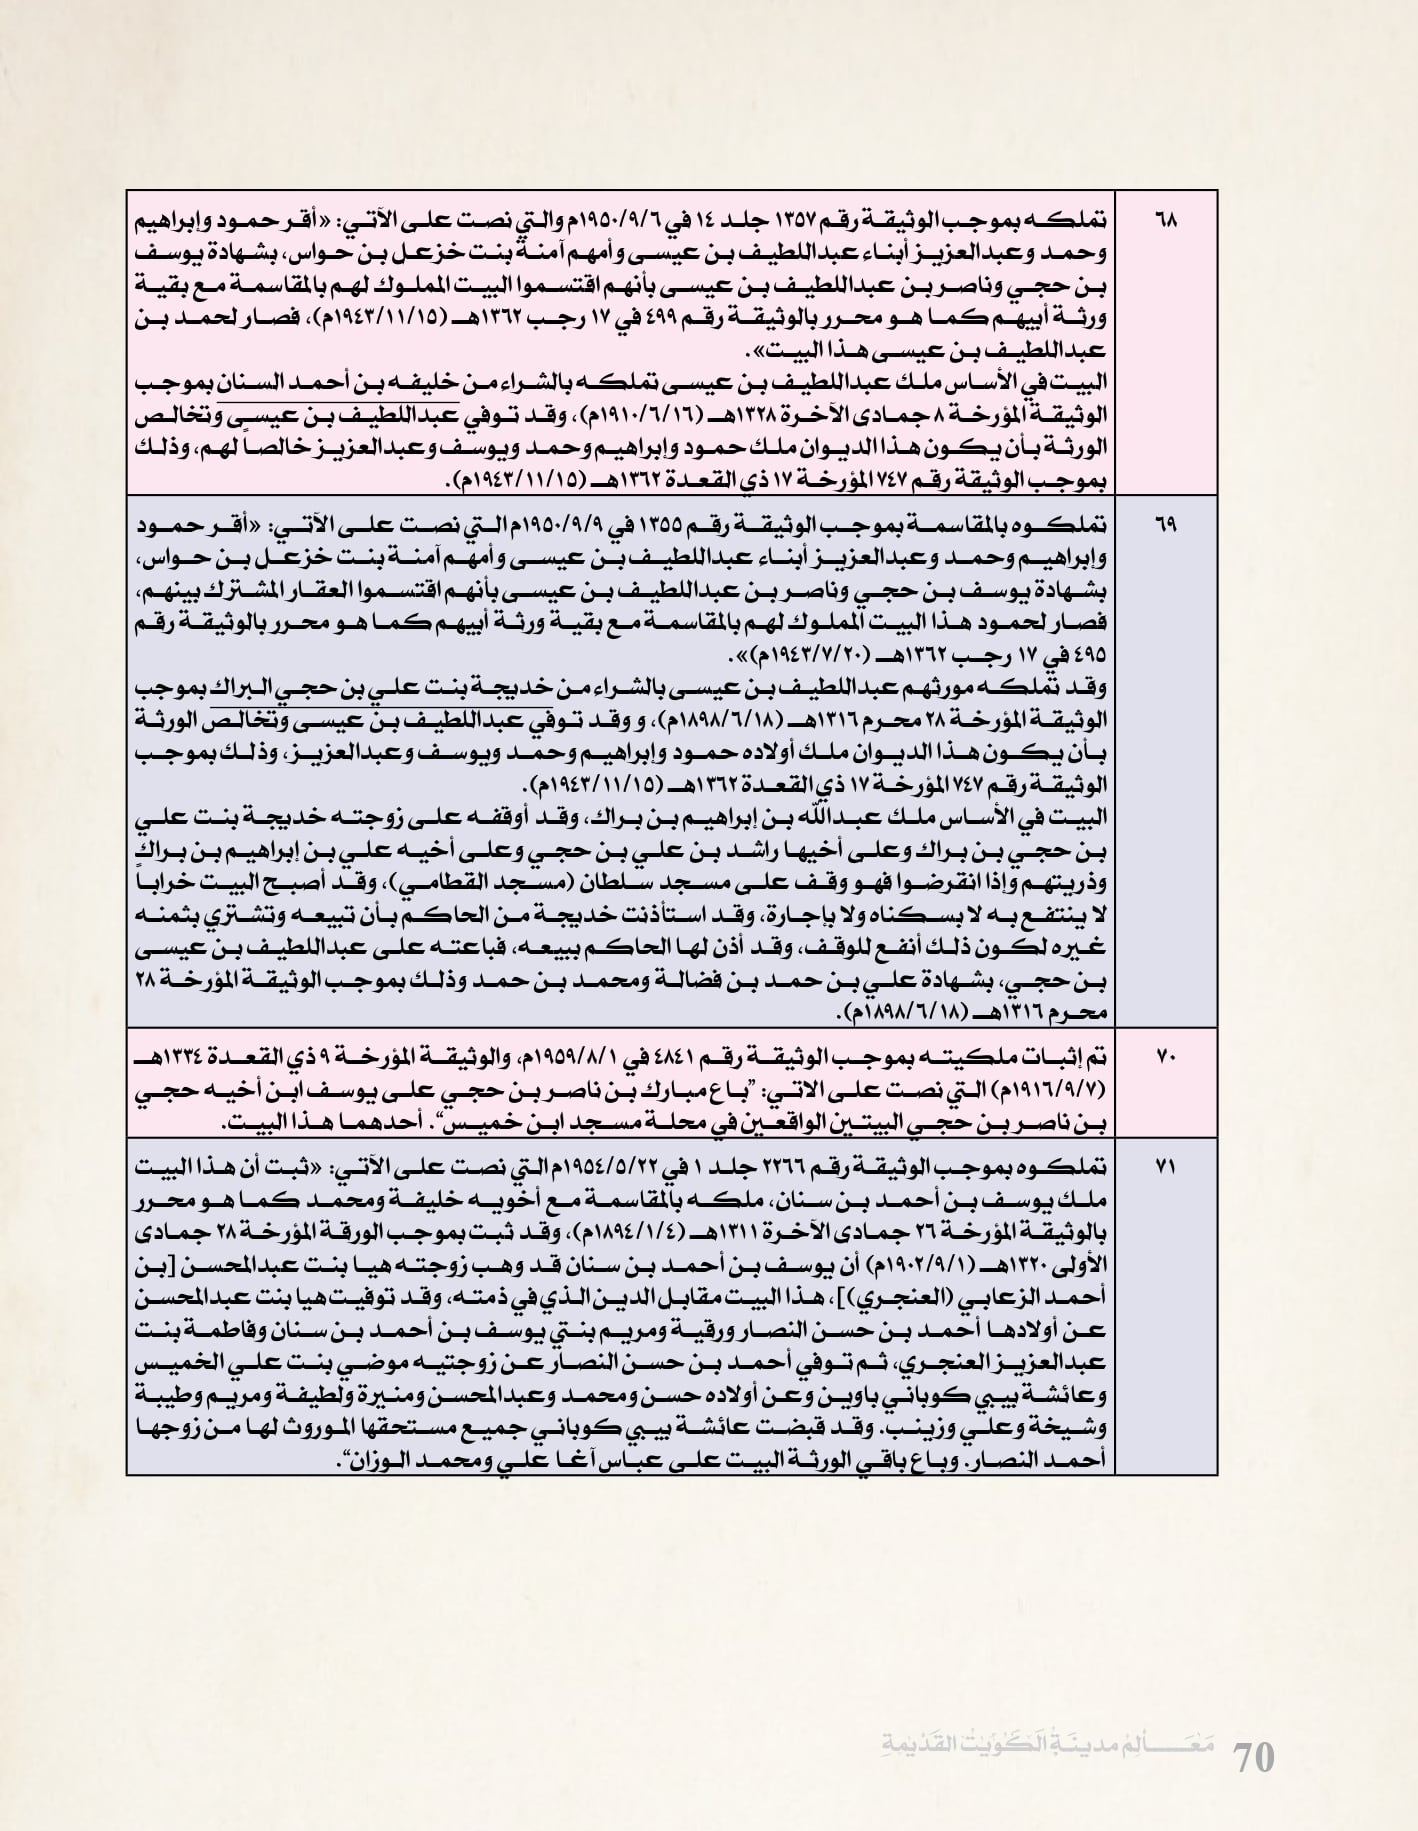 ٦٨
تملكه بموجب الوثيقة رقم ١٣٥٧ جلد ١٤ في ١٩٥٠/٩/٦م والتي نصت على الآتي: «أقر حمود وإبراهيم
وحمد وعبدالعزيز أبناء عبداللطيف بن عيسى وأمهم آمنة بنت خزعل بن حواس، بشهادة يوسف
بن حجي وناصر بن عبداللطيف بن عيسى بأنهم اقتسموا البيت المملوك لهم بالمقاسمة مع بقية
ورثة أبيهم كما هو محرر بالوثيقة رقم ٤٩٩ في ١٧ رجب ١٣٦٢هـ (١٩٤٣/١١/١٥م)، فصار لحمد بن
عبداللطيف بن عيسى هذا البيت».
البيت في الأساس ملك عبداللطيف بن عيسى تملكه بالشراء من خليفه بن أحمد السنان بموجب
الوثيقة المؤرخة ٨ جمادى الآخرة ١٣٢٨هـ (١٩١٠/٦/١٦م)، وقد توفي عبداللطيف بن عيسى وتخالص
الورثة بأن يكون هذا الديوان ملك حمود وإبراهيم وحمد ويوسف وعبدالعزيز خالصاً لهم، وذلك
بموجب الوثيقة رقم ٧٤٧ المؤرخة ١٧ ذي القعدة ١٣٦٢هـ (١٩٤٣/١١/١٥م).
٦٩
تملكوه بالمقاسمة بموجب الوثيقة رقم ١٣٥٥ في ١٩٥٠/٩/٩م التي نصت على الآتي: «أقر حمود
وإبراهيم وحمد وعبدالعزيز أبناء عبداللطيف بن عيسى وأمهم آمنة بنت خزعل بن حواس،
بشهادة يوسف بن حجي وناصر بن عبداللطيف بن عيسى بأنهم اقتسموا العقار المشترك بينهم،
فصار لحمود هذا البيت المملوك لهم بالمقاسمة مع بقية ورثة أبيهم كما هو محرر بالوثيقة رقم
٤٩٥ في ١٧ رجب ١٣٦٢هـ (١٩٤٣/٧/٢٠م)».
وقد تملكه مورثهم عبداللطيف بن عيسى بالشراء من خديجة بنت علي بن حجي البراك بموجب
الوثيقة المؤرخة ٢٨ محرم ١٣١٦هـ (١٨٩٨/٦/١٨م)، و وقد توفي عبداللطيف بن عيسى وتخالص الورثة
بأن يكون هذا الديوان ملك أولاده حمود وإبراهيم وحمد ويوسف وعبدالعزيز، وذلك بموجب
الوثيقة رقم ٧٤٧ المؤرخة ١٧ ذي القعدة ١٣٦٢هـ (١٩٤٣/١١/١٥م).
البيت في الأساس ملك عبدالله بن إبراهيم بن براك، وقد أوقفه على زوجته خديجة بنت علي
بن حجي بن براك وعلى أخيها راشد بن علي بن حجي وعلى أخيه علي بن إبراهيم بن براك
وذريتهم وإذا انقرضوا فهو وقف على مسجد سلطان (مسجد القطامي)، وقد أصبح البيت خراباً
لا ينتفع به لا بسكناه ولا بإجارة، وقد استأذنت خديجة من الحاكم بأن تبيعه وتشتري بثمنه
غيره لكون ذلك أنفع للوقف، وقد أذن لها الحاكم ببيعه، فباعته على عبداللطيف بن عيسى
بن حجي، بشهادة علي بن حمد بن فضالة ومحمد بن حمد وذلك بموجب الوثيقة المؤرخة ٢٨
محرم ١٣١٦هـ (١٨٩٨/٦/١٨م).
٧٠
تم إثبات ملكيته بموجب الوثيقة رقم ٤٨٤١ في ١٩٥٩/٨/١م، والوثيقة المؤرخة ٩ ذي القعدة ١٣٣٤هـ
(١٩١٦/٩/٧م) التي نصت على الاتي: "باع مبارك بن ناصر بن حجي على يوسف ابن أخيه حجي
بن ناصر بن حجي البيتين الواقعين في محلة مسجد ابن خميس“. أحدهما هذا البيت.
٧١
تملكوه بموجب الوثيقة رقم ٢٢٦٦ جلد ١ في ١٩٥٤/٥/٢٢م التي نصت على الآتي: «ثبت أن هذا البيت
ملك يوسف بن أحمد بن سنان، ملكه بالمقاسمة مع أخويه خليفة ومحمد كما هو محرر
بالوثيقة المؤرخة ٢٦ جمادى الآخرة ١٣١١هـ (١٨٩٤/١/٤م)، وقد ثبت بموجب الورقة المؤرخة ٢٨ جمادى
الأولى ١٣٢٠هـ (١٩٠٢/٩/١م) أن يوسف بن أحمد بن سنان قد وهب زوجته هيا بنت عبدالمحسن [بن
أحمد الزعابي (العنجري)]، هذا البيت مقابل الدين الذي في ذمته، وقد توفيت هيا بنت عبدالمحسن
عن أولادها أحمد بن حسن النصار ورقية ومريم بنتي يوسف بن أحمد بن سنان وفاطمة بنت
عبدالعزيز العنجري، ثم توفي أحمد بن حسن النصار عن زوجتيه موضي بنت علي الخميس
وعائشة بيبي كوباني باوين وعن أولاده حسن ومحمد وعبدالمحسن ومنيرة ولطيفة ومريم وطيبة
وشيخة وعلي وزينب. وقد قبضت عائشة بيبي كوباني جميع مستحقها الموروث لها من زوجها
أحمد النصار. وباع باقي الورثة البيت على عباس آغا علي ومحمد الوزان“.
70 مَعَالِمْ مدينَةِ الكَوَيْتْ القَدْيمةِ